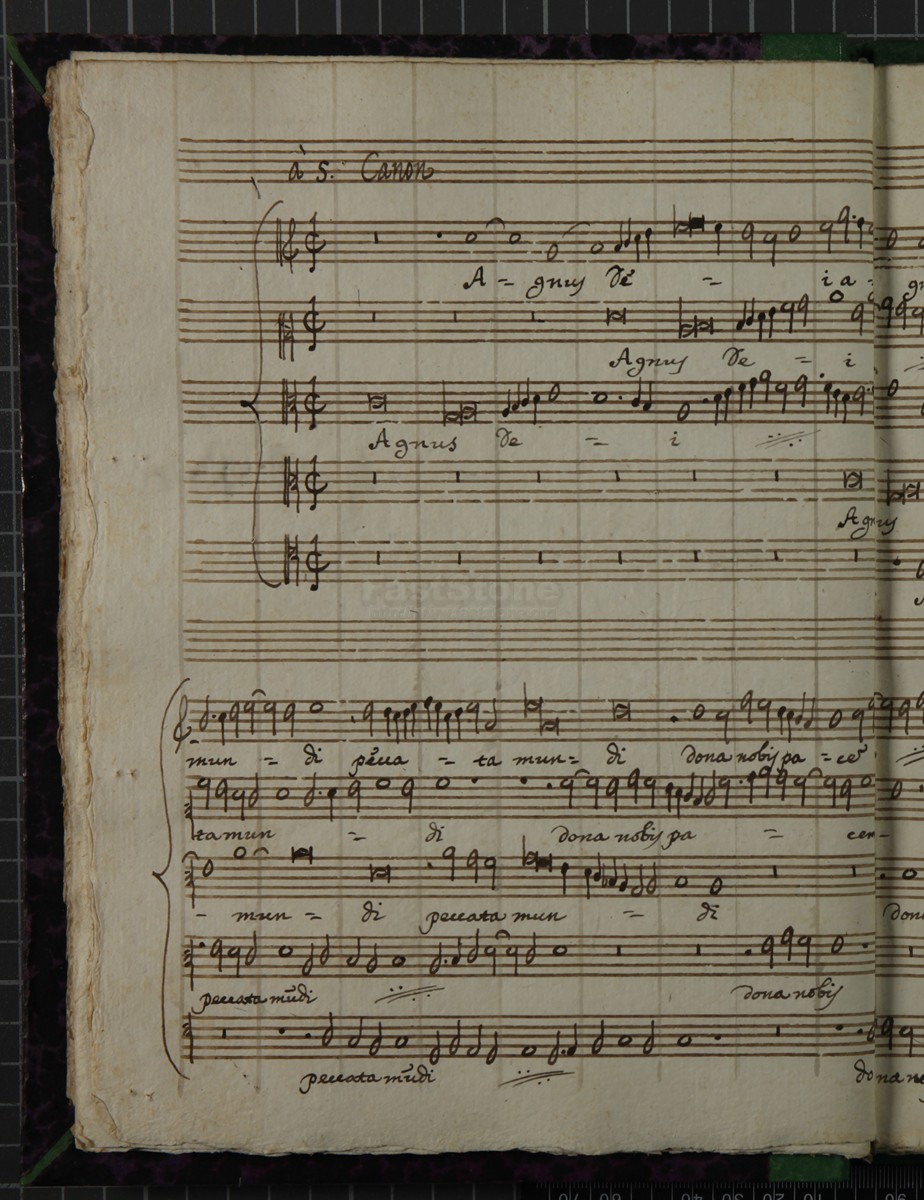 à 5. Canon
A = gnus De = i a - gn
Agnus De = i
Agnus De = i
Agnus
FastStone
mun = di pecca = ta mun = di dona nobis pa = cē
ta mun = di dona nobis pa = cem-
- mun = di peccata mun = di don
peccata mūdi dona nobis
peccata mūdi dona no
70 60 50 40 30 20 10